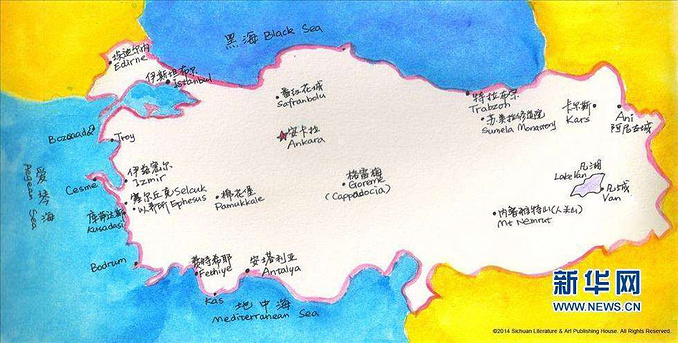 黑海 Black Sea
埃迪尔内
Edirne
伊斯坦布尔
Istanbul
番红花城
Safranbolu
特拉布宗
Trabzon
苏美拉修道院
Sumela Monastery
卡尔斯
Kars
Ani
阿尼古城
Bozcaada
Troy
安卡拉
Ankara
爱琴海
Aegean Sea
Cesme
伊兹密尔
Izmir
塞尔丘克 Selcuk
以弗所 Ephesus
棉花堡
Pamukkale
格雷梅
Goreme
(Cappadocia)
凡湖
Lake Van
凡城
Van
库萨达斯
Kusadasi
内姆鲁特山(人头山)
Mt Nemrut
Bodrum
费特希耶
Fethiye
安塔利亚
Antalya
Kas
地中海
Mediterranean Sea
新华网
WWW.NEWS.CN
©2014 Sichuan Literature & Art Publishing House. All Rights Reserved.